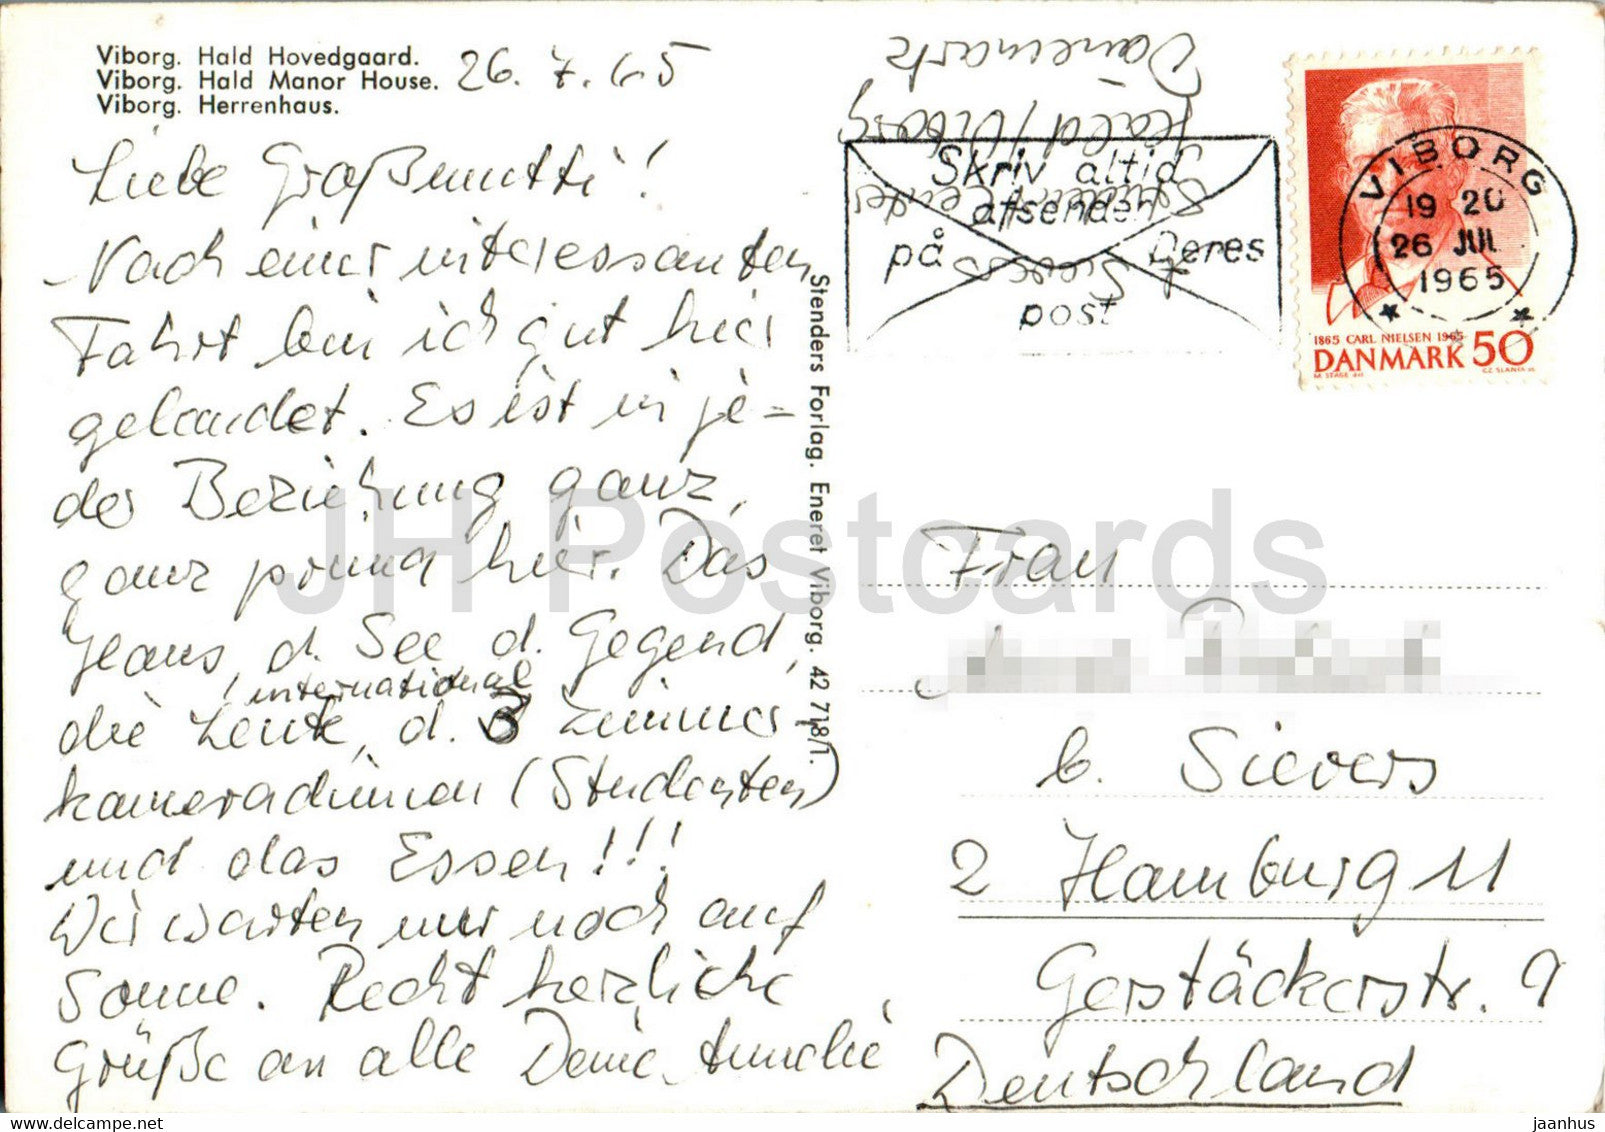 Viborg. Hald Hovedgaard.
Viborg. Hald Manor House.
Viborg. Herrenhaus.
26. 7. 65
Liebe Großmutti!
Nach einer interessanten
Fahrt bin ich gut hier
gelandet. Es ist in je-
der Beziehung ganz,
ganz prima hier. Das
Haus, d. See d. Gegend,
international
die Leute, d. 3 Zimmer-
kameradinnen (Studenten)
und das Essen!!!
Wir warten nur noch auf
Sonne. Recht herzliche
Grüße an alle Deine Amelie
Stenders Forlag. Eneret Viborg. 42 718/1.
Sievers
Hald/Viborg
Dänemark
Skriv altid
afsender
på Deres
post
VIBORG
19 20
26 JUL
1965
1865 CARL NIELSEN 1965
DANMARK 50
Frau
b. Sievers
2 Hamburg 11
Gerstäckerstr. 9
Deutschland
JH Postcards
jaanhus
delcampe.net